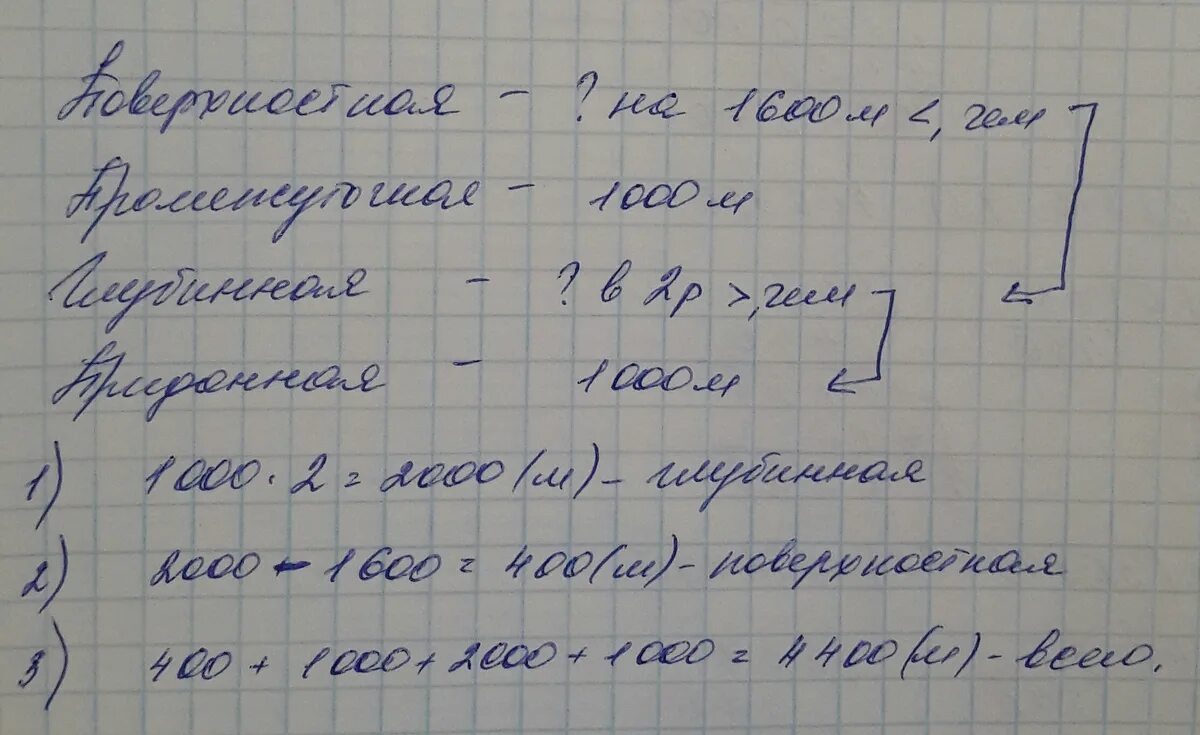 Поверхностная - ? на 1600 м <, чем
Промежуточная - 1000 м
Глубинная - ? в 2р >, чем
Придонная - 1000 м
1) 1000 · 2 = 2000 (м) - глубинная
2) 2000 - 1600 = 400 (м) - поверхностная
3) 400 + 1000 + 2000 + 1000 = 4400 (м) - всего.